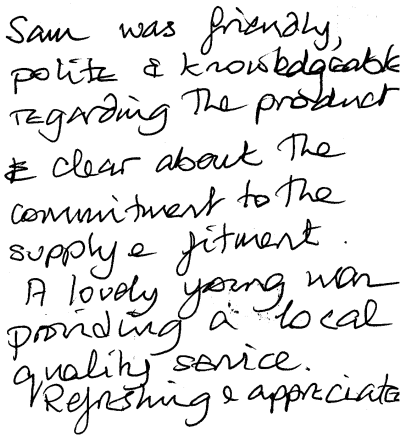 Sam was friendly,
polite & knowledgeable
regarding the product
& clear about the
commitment to the
supply & fitment.
A lovely young man
providing a local
quality service.
Refreshing & appreciate